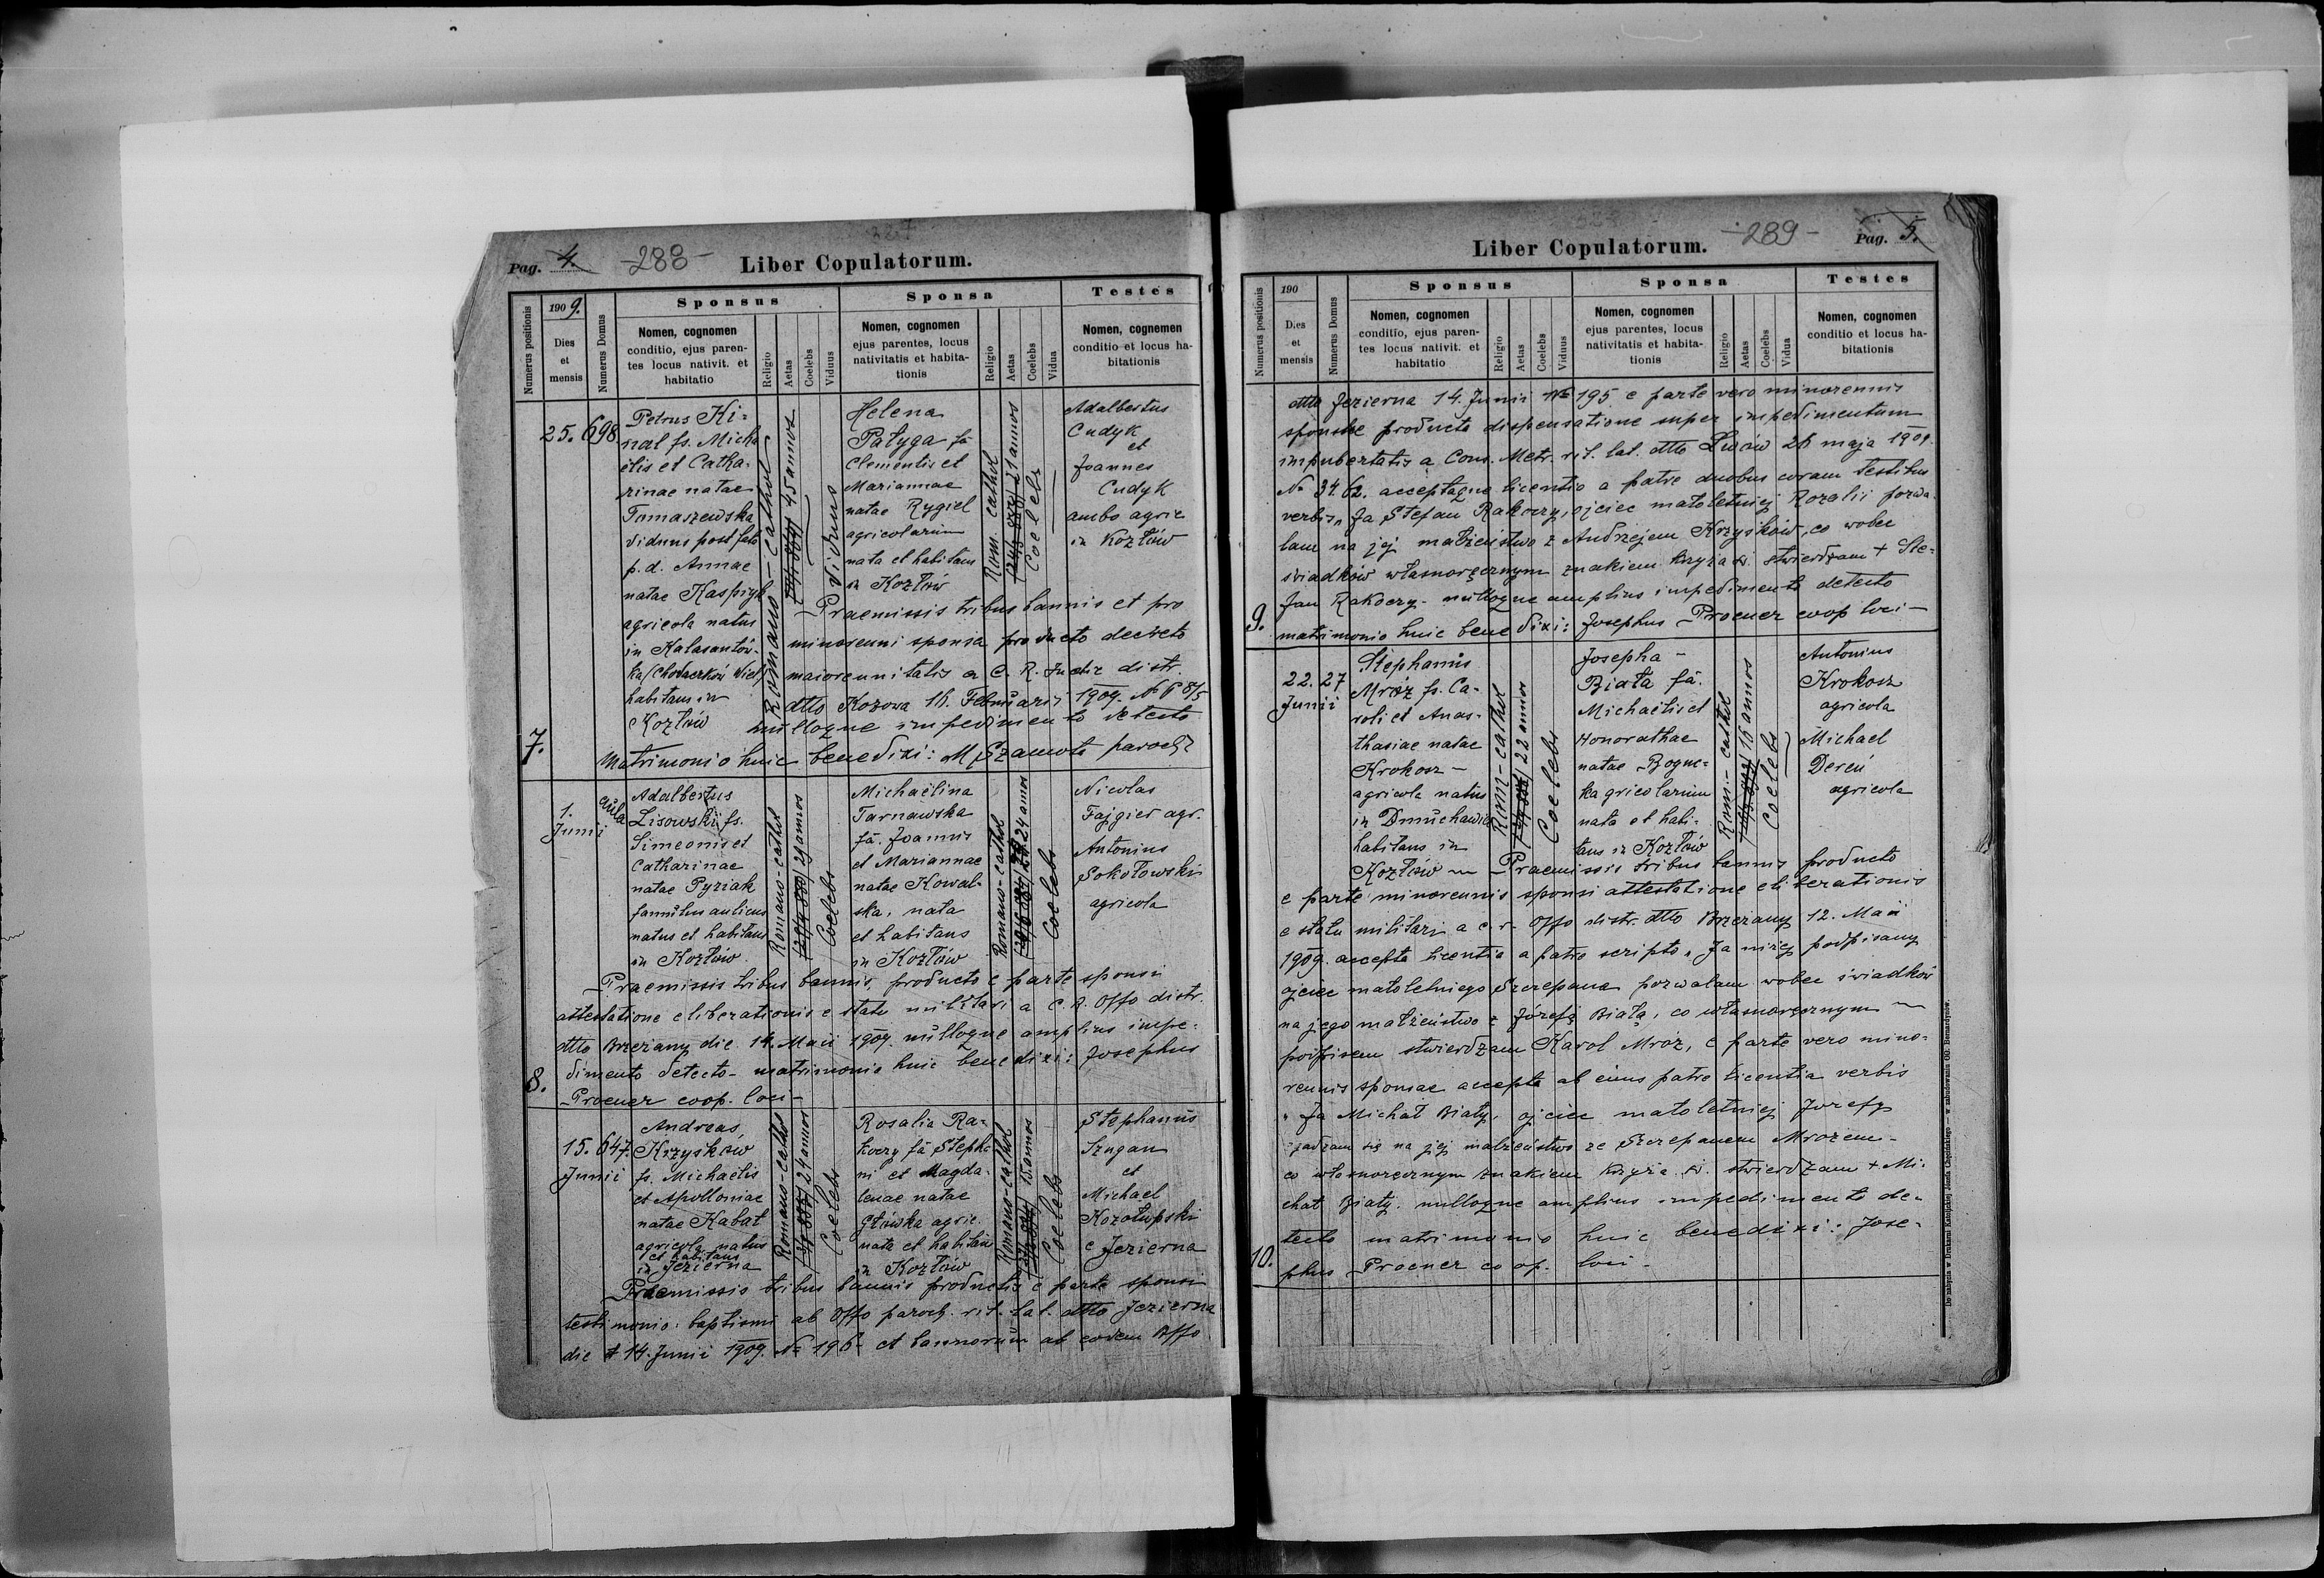 Pag. 4. -288- Liber Copulatorum.
Numerus positionis
1909.
Dies
et
mensis
Numerus Domus
Sponsus
Nomen, cognomen
conditio, ejus paren-
tes locus nativit. et
habitatio
Religio
Aetas
Coelebs
Viduus
Sponsa
Nomen, cognomen
ejus parentes, locus
nativitatis et habita-
tionis
Religio
Aetas
Coelebs
Vidua
Testes
Nomen, cognemen
conditio et locus ha-
bitationis
7.
25. 698
Petrus Ki-
nal fs. Micha
elis et Catha-
rinae natae
Tomaszewska
viduus post fata
p. d. Annae
natae Kaspryk
agricola natus
in Kalasantów-
ka (Chodaczków Wiel)
habitans in
Kozłów
Romano-cathol
45 annos
Viduus
Helena
Pałyga fa
Clementis et
Mariannae
natae Rygiel
agricolarum
nata et habitans
in Kozłów
Rom. cathol
21 annos
Coelebs
Adalbertus
Cudyk
et
Joannes
Cudyk
ambo agric
in Kozłów
Praemissis tribus bannis et pro
minorenni sponsa producto decreto
maiorennitatis a C. R. Judic distr.
dtto Kozowa 16. Februarii 1909. No P 8/5
nulloque impedimento detecto
Matrimonio huic benedixi: M Szamota paroch
8.
1.
Junii
aula
Adalbertus
Lisowski fs.
Simeonis et
Catharinae
natae Pyziak
famulus aulicus
natus et habitans
in Kozłów
Romano-cathol
29 annos
Coelebs
Michaëlina
Tarnawska
fa. Joannis
et Mariannae
natae Kowal-
ska, nata
et habitans
in Kozłów
Romano-cathol
24 annos
Coelebs
Nicolas
Fajgier agr.
Antonius
Sokołowski
agricola
Praemissis tribus bannis, producto e parte sponsi
attestatione eliberationis e statu militari a C. R. Offo distr.
dtto Brzeżany die 14. Maii 1909. nulloque amplius impe-
dimento detecto - matrimonio huic benedixi: Josephus
Procner coop. loci -
15. 647.
Junii
Andreas
Krzyśków
fs. Michaëlis
et Apolloniae
natae Kabat
agricola natus
et habitans
in Jezierna
Romano-cathol
24 annos
Coelebs
Rosalia Ra-
koczy fa Stepha
ni et Magda-
lenae natae
Główka agric.
nata et habitans
in Kozłów
Romano-cathol
15 annos
Coelebs
Stephanus
Szugan
et
Michael
Kozołupski
e Jezierna
Praemissis tribus bannis productis e parte sponsi
testimonio baptismi ab Offo paroch. rit. lat. dtto Jezierna
die 14. Junii 1909. No 196 et bannorum ab eodem Offo
Liber Copulatorum. -289- Pag. 5.
Numerus positionis
190
Dies
et
mensis
Numerus Domus
Sponsus
Nomen, cognomen
conditio, ejus paren-
tes locus nativit. et
habitatio
Religio
Aetas
Coelebs
Viduus
Sponsa
Nomen, cognomen
ejus parentes, locus
nativitatis et habita-
tionis
Religio
Aetas
Coelebs
Vidua
Testes
Nomen, cognomen
conditio et locus ha-
bitationis
dtto Jezierna 14. Junii No 195 e parte vero minorennis
sponsae producta dispensatione super impedimentum
impubertatis a Cons. Metr. rit. lat. dtto Lwów 26 maja 1909.
No 3462. acceptaque licentia a patre duobus coram testibus
verbis „Ja Stefan Rakoczy, ojciec małoletniej Rozalii pozwa-
lam na jej małżeństwo z Andrzejem Krzyśków, co wobec
świadków własnoręcznym znakiem krzyża ś. stwierdzam + Ste-
fan Rakoczy - nulloque amplius impedimento detecto
9. matrimonio huic benedixi: Josephus Procner coop loci -
22. 27
Junii
Stephanus
Mróz fs. Ca-
roli et Anas-
thasiae natae
Krokosz -
agricola natus
in Dmuchawiec
habitans in
Kozłów
Rom-cathol
22 annos
Coelebs
Josepha -
Biała fa.
Michaëlis et
Honorathae
natae Bogu-
ka agricolarum
nata et habi-
tans in Kozłów
Rom.-cathol
16 annos
Coelebs
Antonius
Krokosz
agricola
Michael
Dereń
agricola
Praemissis tribus bannis producto
e parte minorennis sponsi attestatione eliberationis
e statu militari a c. r. Offo distr. dtto Brzeżany 12. Maii
1909. accepta licentia a patre scripto „Ja niżej podpisany
ojciec małoletniego Szczepana pozwalam wobec świadków
na jego małżeństwo z Józefą Białą, co własnoręcznym
podpisem stwierdzam Karol Mróz, e parte vero mino-
rennis sponsae accepta ab eius patre licentia verbis
„Ja Michał Biały, ojciec małoletniej Józefy
zgadzam się na jej małżeństwo ze Szczepanem Mrozem -
co własnoręcznym znakiem krzyża ś. stwierdzam + Mi-
chał Biały. nulloque amplius impedimento de-
tecto matrimonio huic benedixi: Jose-
10. phus Procner coop. loci -
Do nabycia w Drukarni Katolickiej Józefa Chęcińskiego — w zabudowaniu OO. Bernardynów.